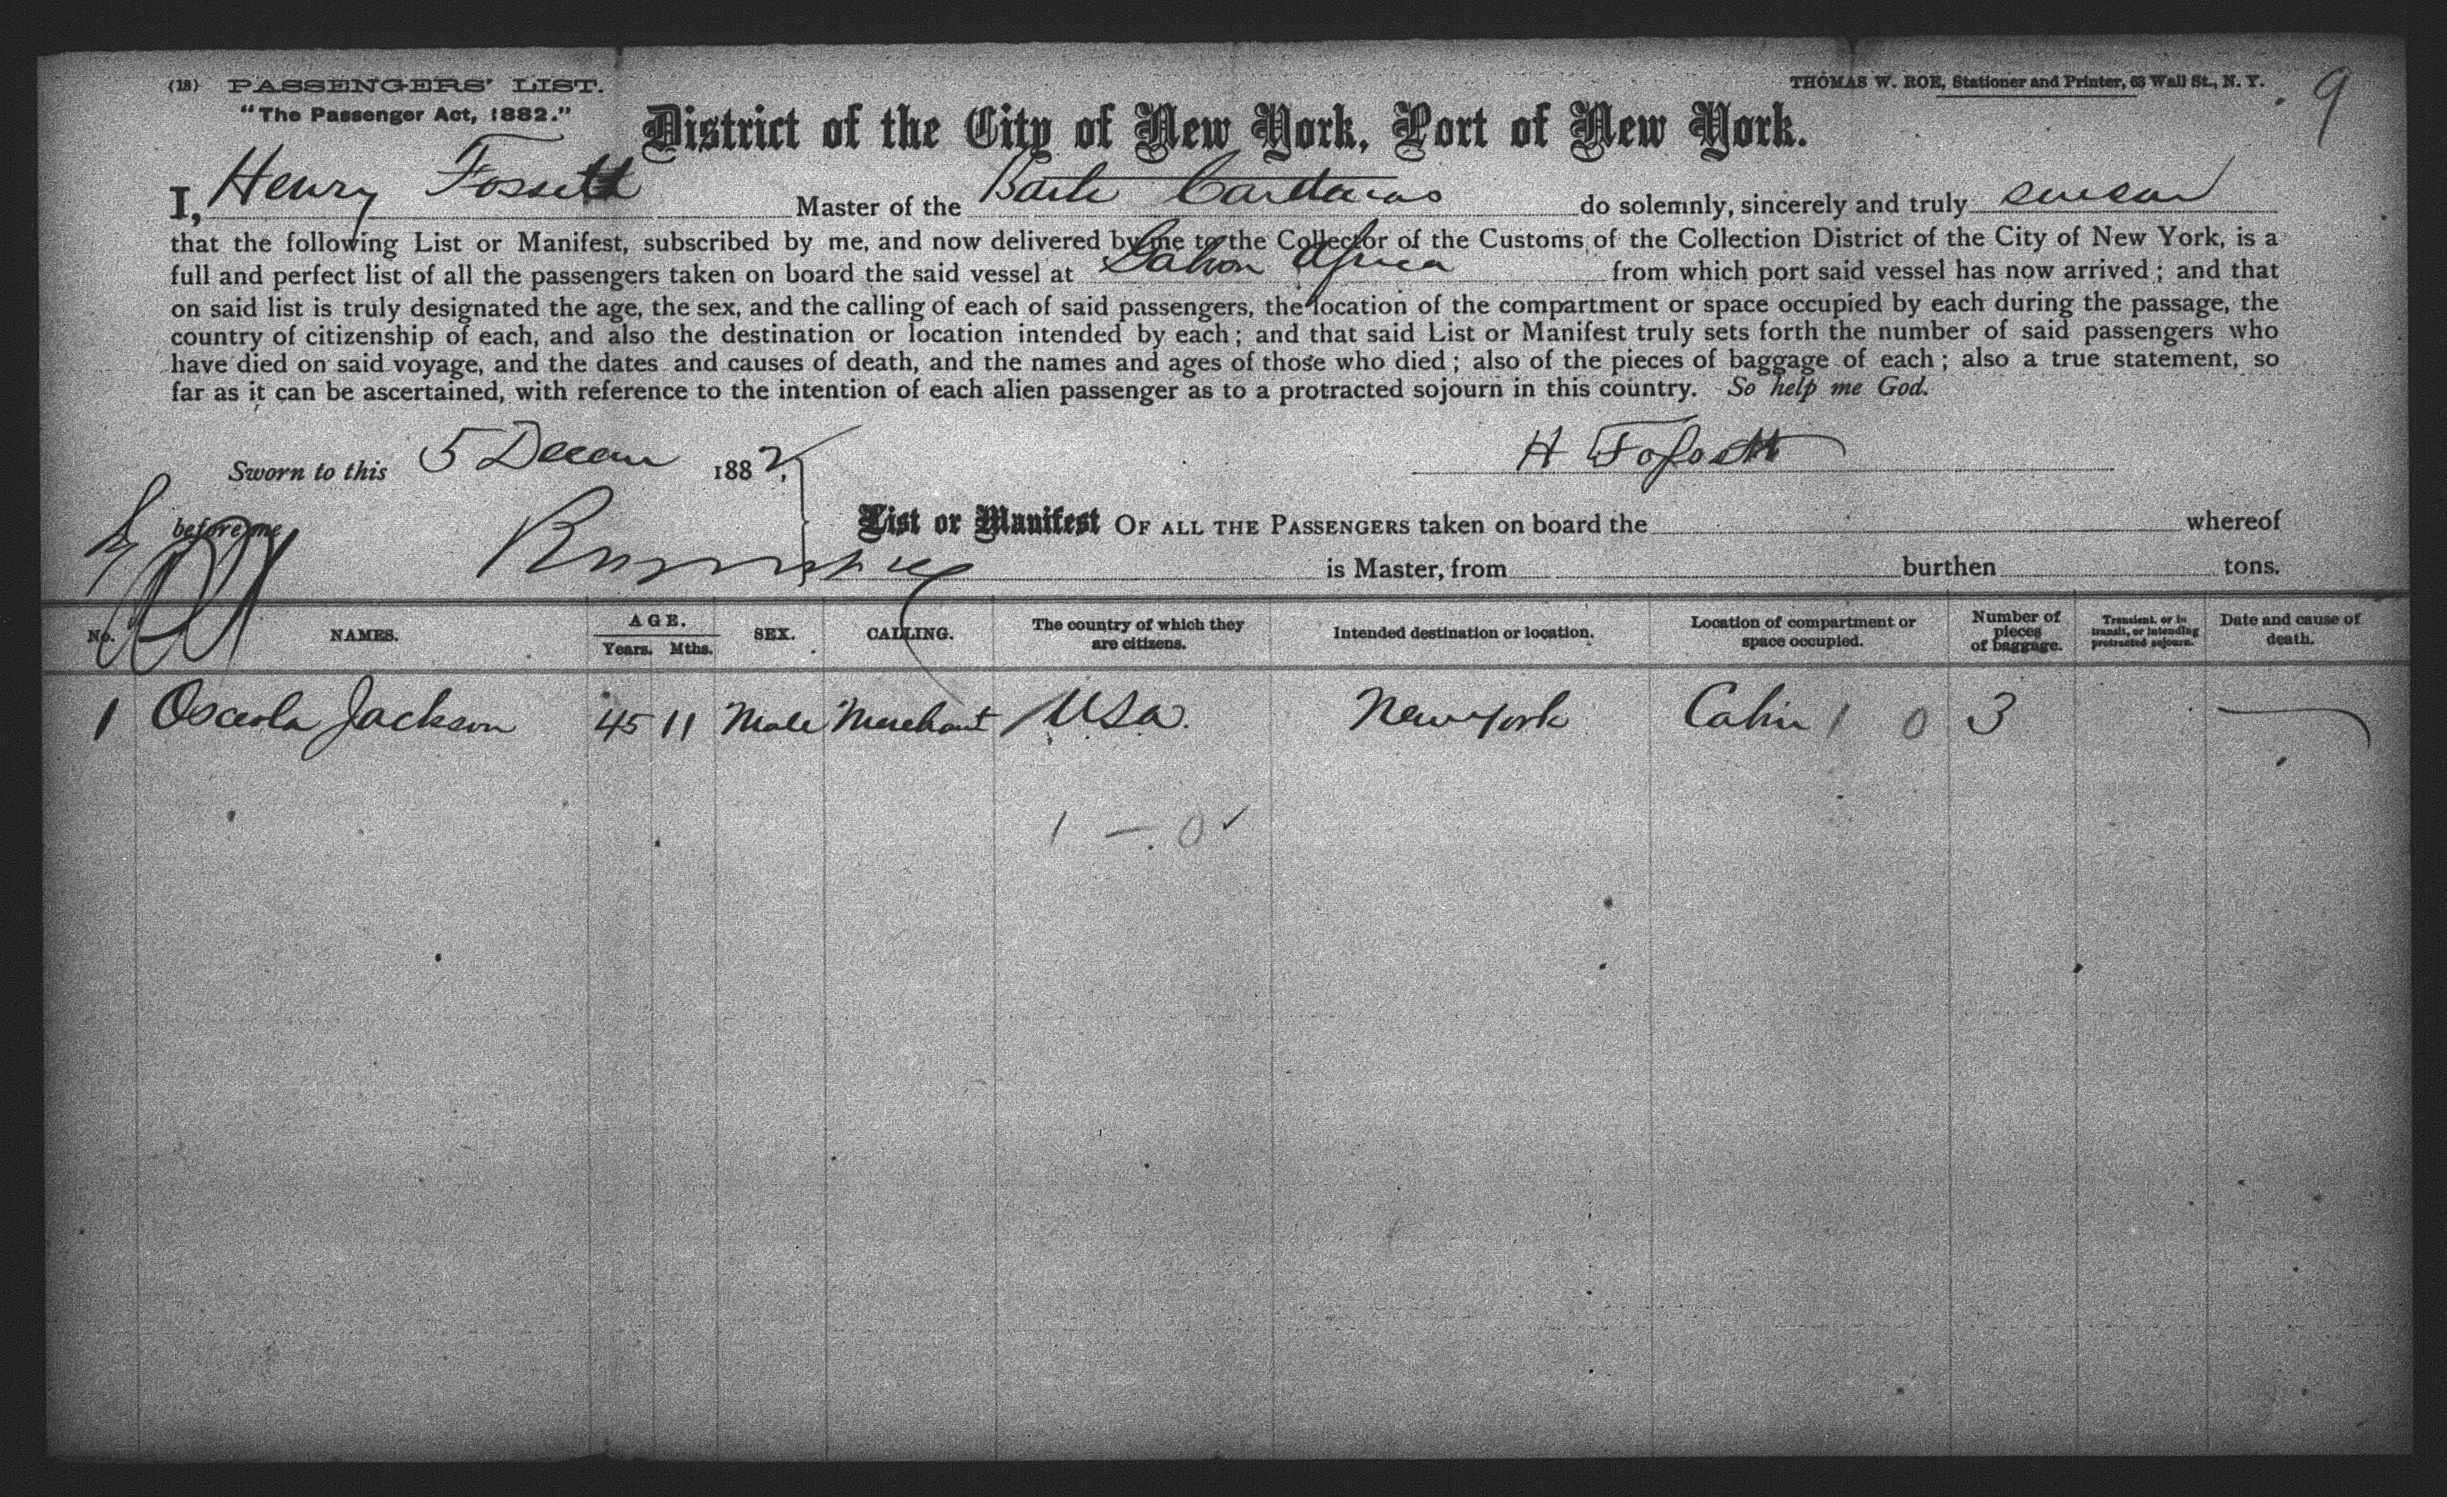 (18) PASSENGERS' LIST.
"The Passenger Act, 1882."
THOMAS W. ROE, Stationer and Printer, 63 Wall St., N. Y.
9
District of the City of New York, Port of New York.
I, Henry Master of the Bark Cardenas do solemnly, sincerely and truly swear
that the following List or Manifest, subscribed by me, and now delivered by me to the Collector of the Customs of the Collection District of the City of New York, is a
full and perfect list of all the passengers taken on board the said vessel at Gabon Africa from which port said vessel has now arrived; and that
on said list is truly designated the age, the sex, and the calling of each of said passengers, the location of the compartment or space occupied by each during the passage, the
country of citizenship of each, and also the destination or location intended by each; and that said List or Manifest truly sets forth the number of said passengers who
have died on said voyage, and the dates and causes of death, and the names and ages of those who died; also of the pieces of baggage of each; also a true statement, so
far as it can be ascertained, with reference to the intention of each alien passenger as to a protracted sojourn in this country. So help me God.
Sworn to this 5 1882, H
before me
List or Manifest OF ALL THE PASSENGERS taken on board the whereof
is Master, from burthen tons.
No. NAMES. AGE. Years. Mths. SEX. CALLING. The country of which they are citizens. Intended destination or location. Location of compartment or space occupied. Number of pieces of baggage. Transient, or in transit, or intending protracted sojourn. Date and cause of death.
1 Osceola Jackson 45 11 Male Merchant USa. New York Cabin 1 0 3
1 — 0 ✓